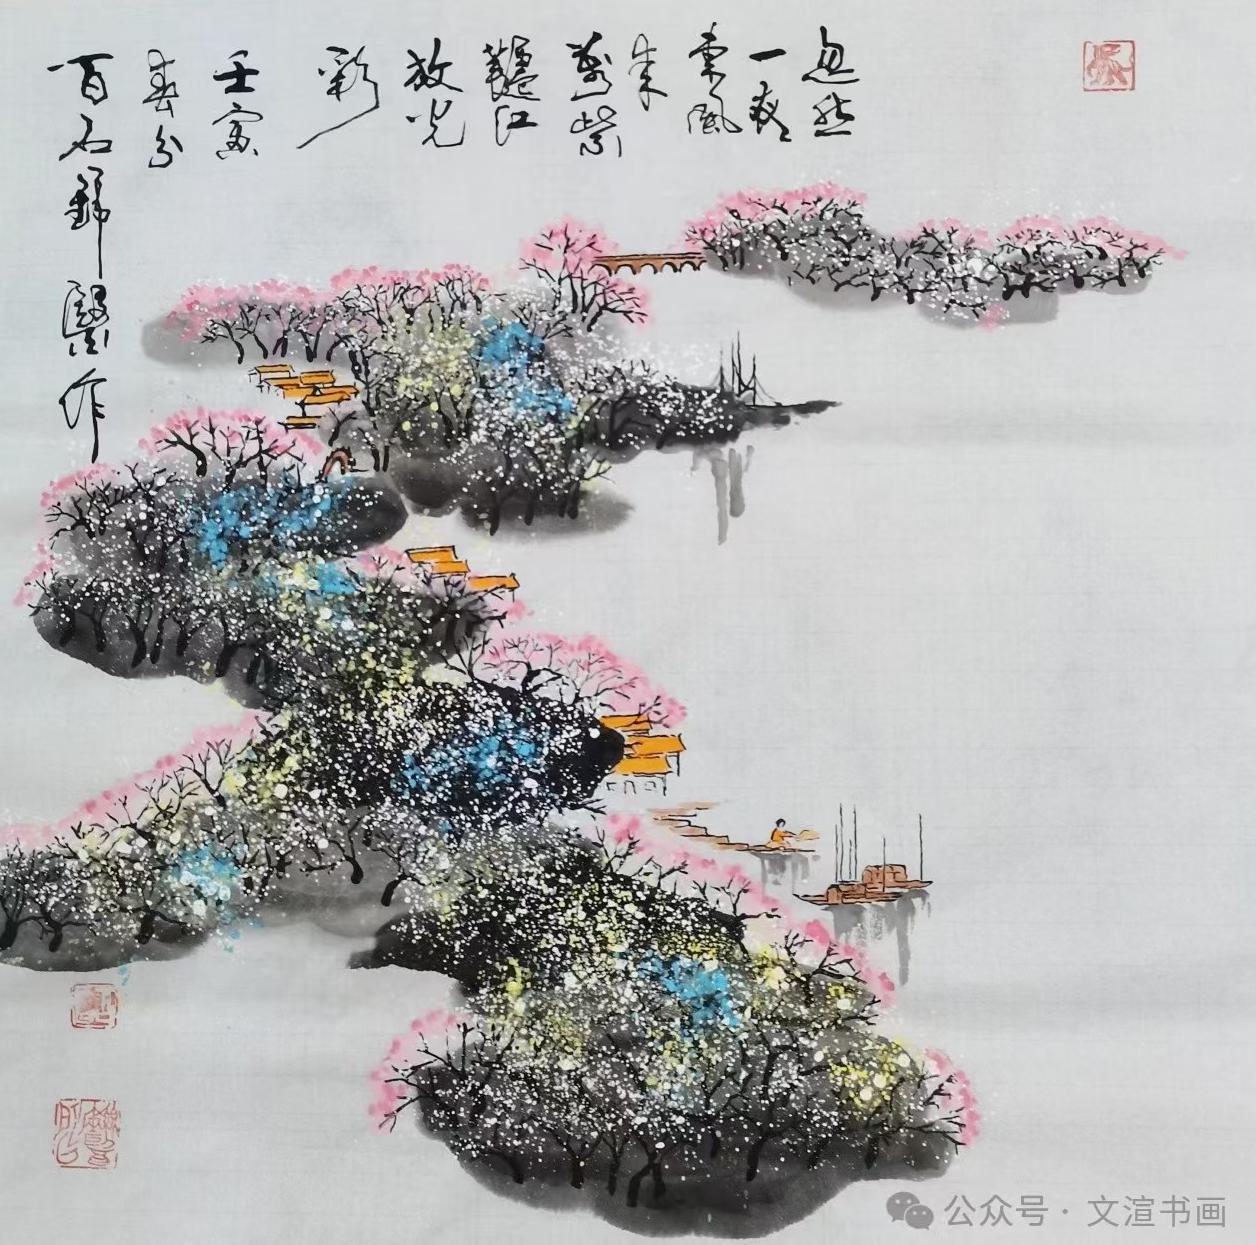 忽然
一夜
東風
来
萬紫
韆红
放光
彩
壬寅
春分
百石 作
公众号 · 文渲书画